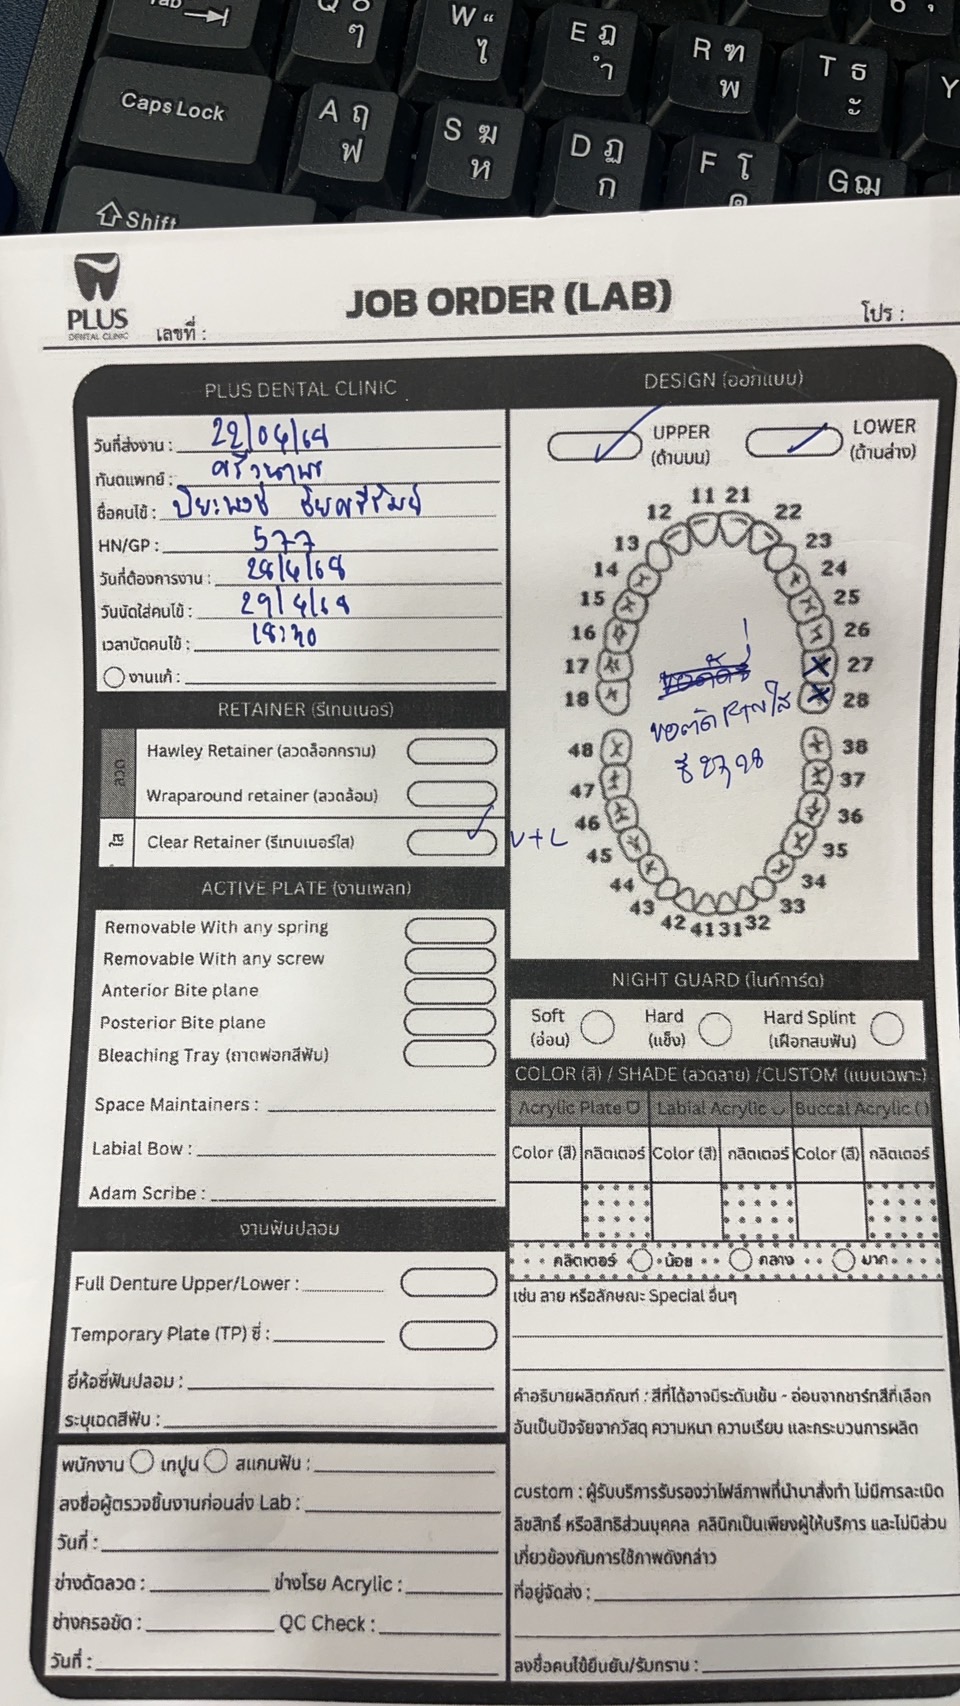 Tab
Q
ๆ
W “
ไ
E ฎ
ำ
R ฑ
พ
T ธ
ะ
Y
Caps Lock
A ฤ
ฟ
S ฆ
ห
D ฏ
ก
F โ
ด
G ฌ
Shift
PLUS
DENTAL CLINIC
JOB ORDER (LAB)
เลขที่ :
โปร :
PLUS DENTAL CLINIC
วันที่ส่งงาน : 22/04/68
ทันตแพทย์ :
ชื่อคนไข้ : ปิยะพงษ์
HN/GP : 577
วันที่ต้องการงาน : 28/4/68
วันนัดใส่คนไข้ : 29/4/68
เวลานัดคนไข้ : 18:30
งานแก้ :
RETAINER (รีเทนเนอร์)
ลวด
Hawley Retainer (ลวดล็อกกราม)
Wraparound retainer (ลวดล้อม)
ใส
Clear Retainer (รีเทนเนอร์ใส)
U+L
ACTIVE PLATE (งานเพลท)
Removable With any spring
Removable With any screw
Anterior Bite plane
Posterior Bite plane
Bleaching Tray (ถาดฟอกสีฟัน)
Space Maintainers :
Labial Bow :
Adam Scribe :
งานฟันปลอม
Full Denture Upper/Lower :
Temporary Plate (TP) ซี่ :
ยี่ห้อซี่ฟันปลอม :
ระบุเฉดสีฟัน :
พนักงาน เทปูน สแกนฟัน :
ลงชื่อผู้ตรวจชิ้นงานก่อนส่ง Lab :
วันที่ :
ช่างดัดลวด : ช่างโรย Acrylic :
ช่างกรอขัด : QC Check :
วันที่ :
DESIGN (ออกแบบ)
UPPER
(ด้านบน)
LOWER
(ด้านล่าง)
11 21
12 22
13 23
14 24
15 25
16 26
17 27
18 28
ขอตัด RTN ใส
ซี่ 27, 28
48 38
47 37
46 36
45 35
44 34
43 33
42 41 31 32
NIGHT GUARD (ไนท์การ์ด)
Soft
(อ่อน)
Hard
(แข็ง)
Hard Splint
(เฝือกสบฟัน)
COLOR (สี) / SHADE (ลวดลาย) /CUSTOM (แบบเฉพาะ)
Acrylic Plate Labial Acrylic Buccal Acrylic
Color (สี) กลิตเตอร์ Color (สี) กลิตเตอร์ Color (สี) กลิตเตอร์
กลิตเตอร์ น้อย กลาง มาก
เช่น ลาย หรือลักษณะ Special อื่นๆ
คำอธิบายผลิตภัณฑ์ : สีที่ได้อาจมีระดับเข้ม - อ่อนจากชาร์ทสีที่เลือก
อันเป็นปัจจัยจากวัสดุ ความหนา ความเรียบ และกระบวนการผลิต
custom : ผู้รับบริการรับรองว่าไฟล์ภาพที่นำมาสั่งทำ ไม่มีการละเมิด
ลิขสิทธิ์ หรือสิทธิส่วนบุคคล คลินิกเป็นเพียงผู้ให้บริการ และไม่มีส่วน
เกี่ยวข้องกับการใช้ภาพดังกล่าว
ที่อยู่จัดส่ง :
ลงชื่อคนไข้ยืนยัน/รับทราบ :